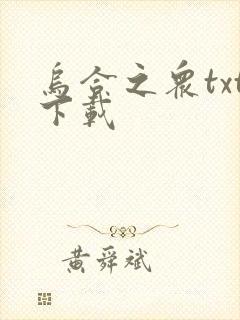 烏合之衆txt
下載
黃舜斌